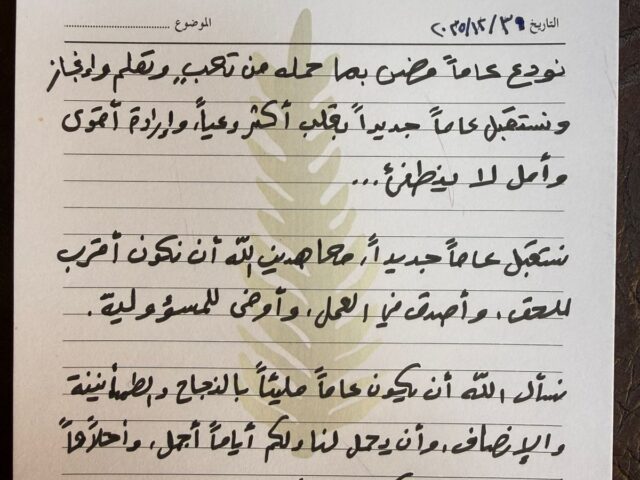 التاريخ ٢٠٢٥/١٢/٣١ الموضوع
نودع عاماً مضى بما حمله من تعبٍ وتعلم وإنجاز
ونستقبل عاماً جديداً بقلب أكثر وعياً، وإرادة أقوى
وأمل لا ينطفئ...
نستقبل عاماً جديداً، معاهدين الله أن نكون أقرب
للحق، وأصدق في العمل، وأوفى للمسؤولية.
نسأل الله أن يكون عاماً مليئاً بالنجاح والطمأنينة
والإنصاف، وأن يحمل لنا ولكم أياماً أجمل، وأحلاماً